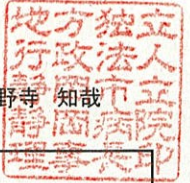 地方独立
行政法人
静岡市立
静岡病院
理事長印
野寺 知哉